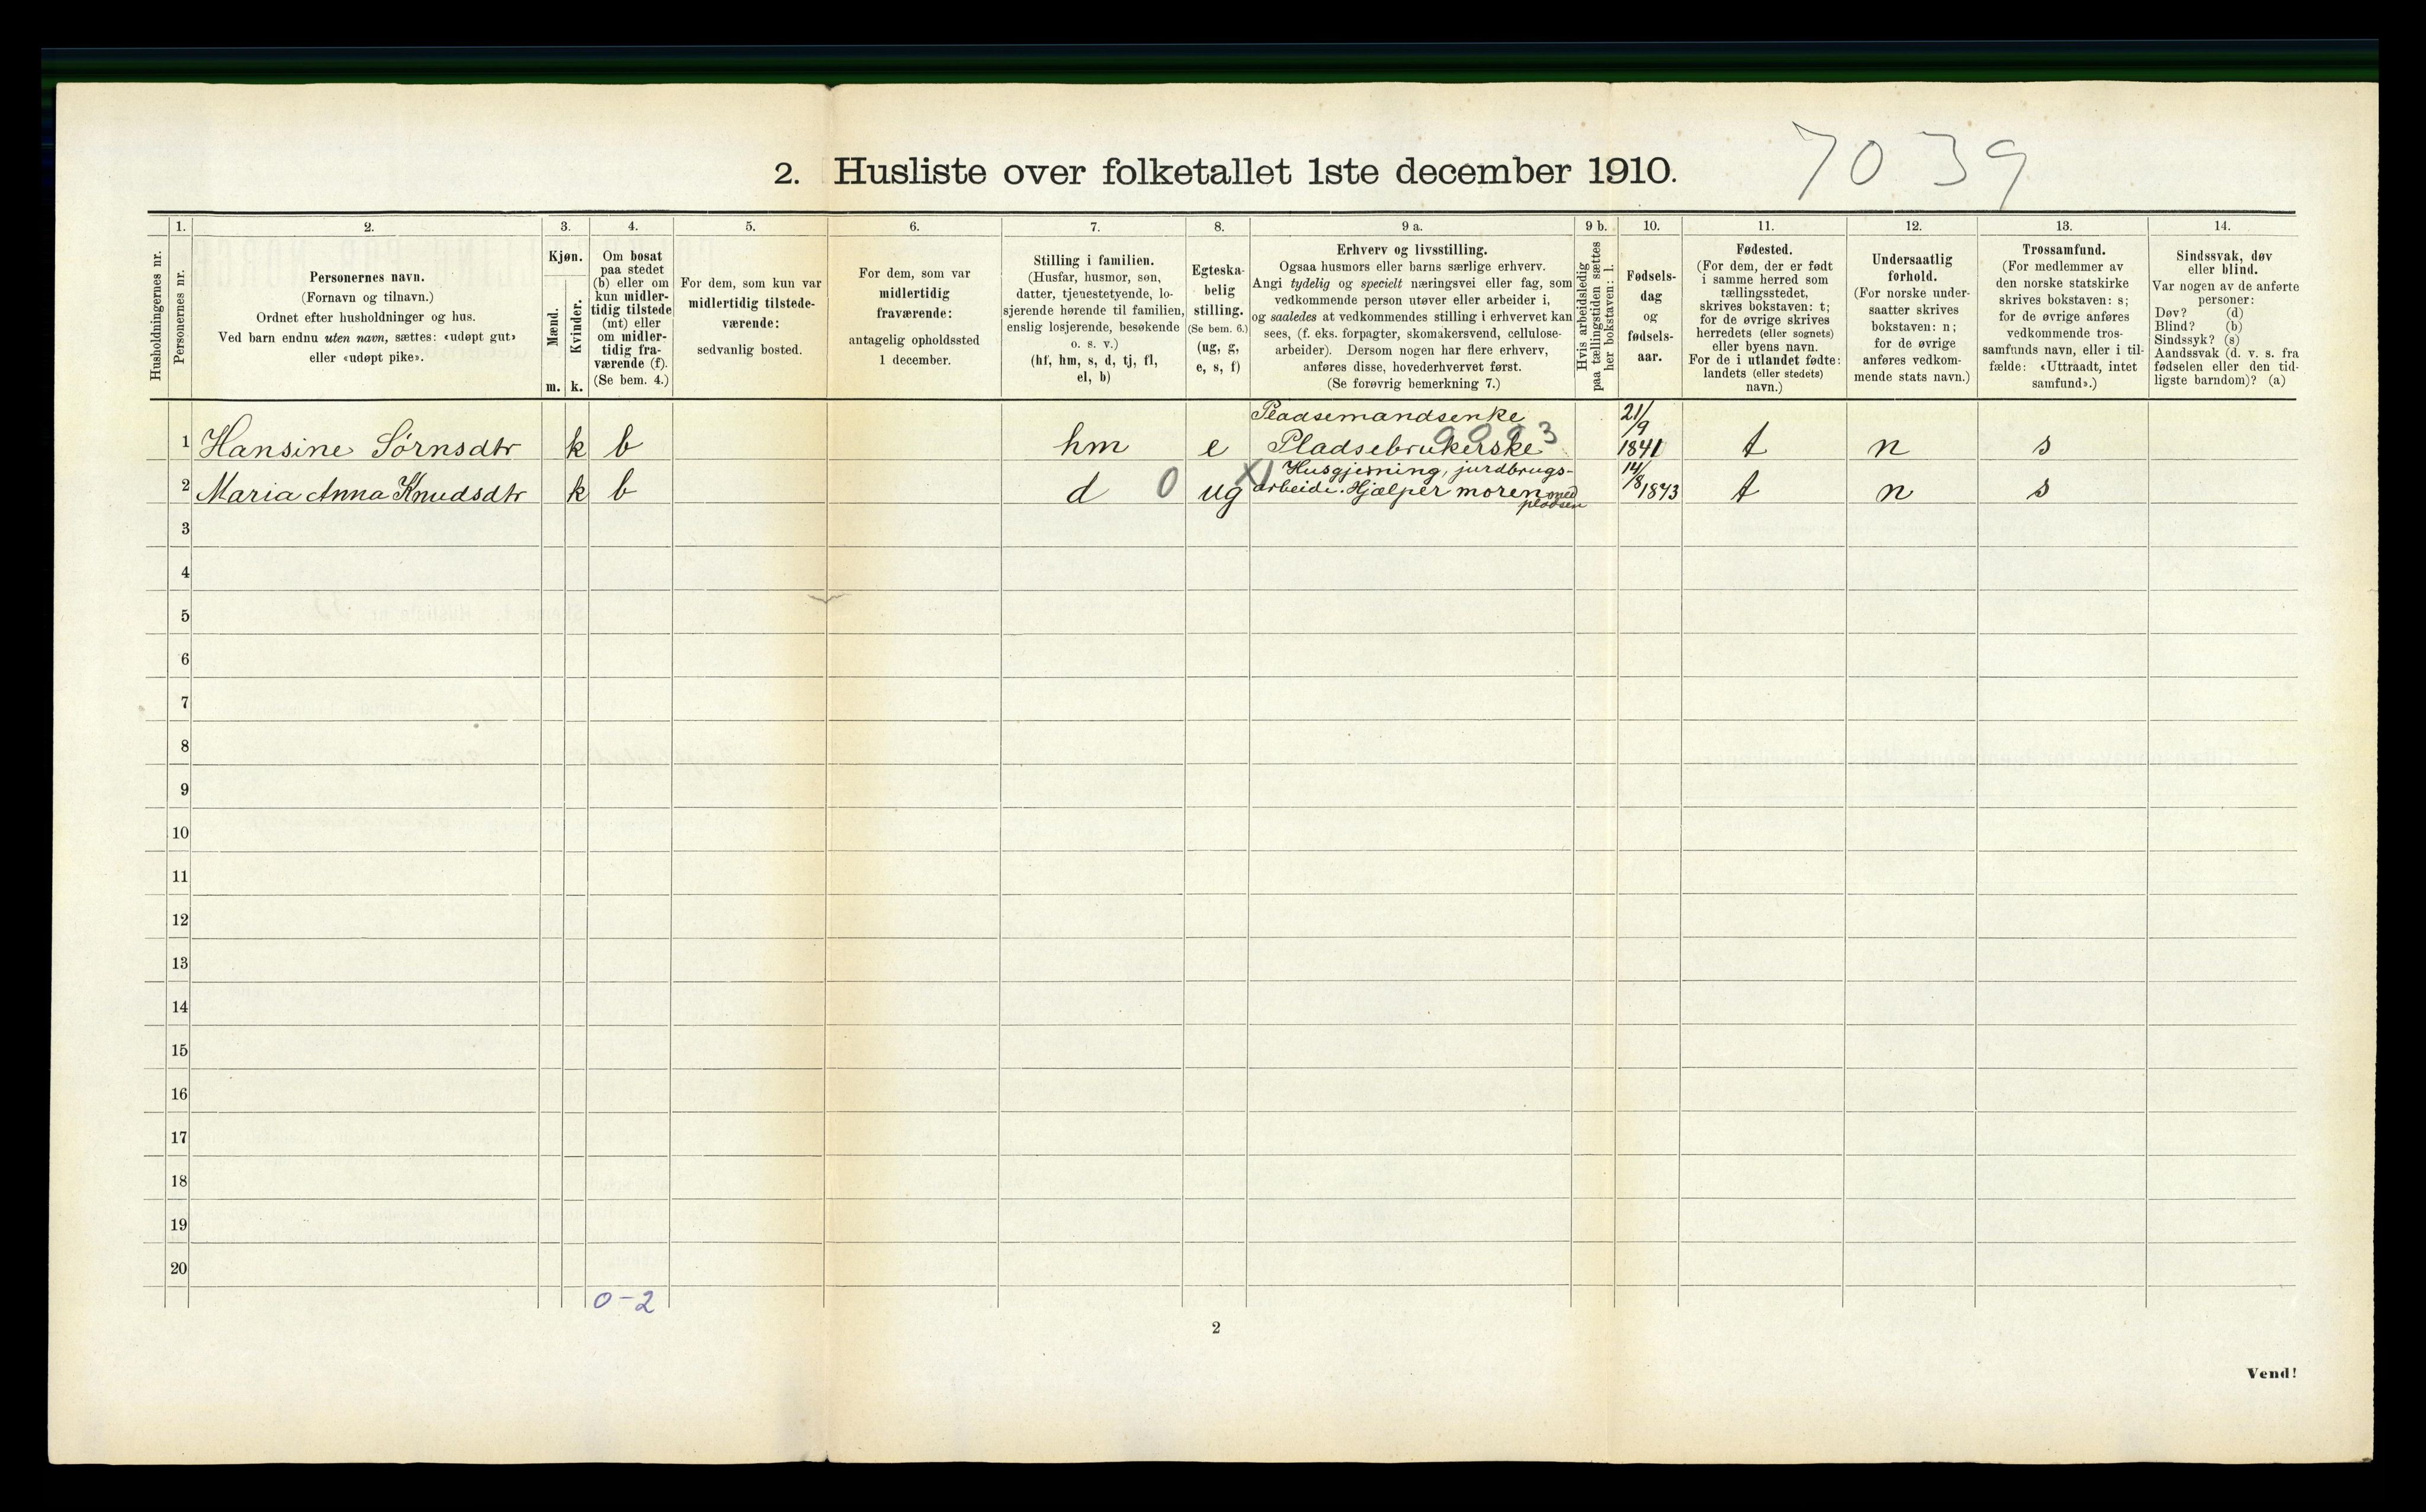 7039
2. Husliste over folketallet 1ste december 1910.
Husholdningernes nr.
1.
Personernes nr.
2.
Personernes navn.
(Fornavn og tilnavn.)
Ordnet efter husholdninger og hus.
Ved barn endnu uten navn, sættes: «udøpt gut»
eller «udøpt pike».
3.
Kjøn.
Mænd.
Kvinder.
m. k.
4.
Om bosat
paa stedet
(b) eller om
kun midler-
tidig tilstede
(mt) eller
om midler-
tidig fra-
værende (f).
(Se bem. 4.)
5.
For dem, som kun var
midlertidig tilstede-
værende:
sedvanlig bosted.
6.
For dem, som var
midlertidig
fraværende:
antagelig opholdssted
1 december.
7.
Stilling i familien.
(Husfar, husmor, søn,
datter, tjenestetyende, lo-
sjerende hørende til familien,
enslig losjerende, besøkende
o. s. v.)
(hf, hm, s, d, tj, fl,
el, b)
8.
Egteska-
belig
stilling.
(Se bem. 6.)
(ug, g,
e, s, f)
9 a.
Erhverv og livsstilling.
Ogsaa husmors eller barns særlige erhverv.
Angi tydelig og specielt næringsvei eller fag, som
vedkommende person utøver eller arbeider i,
og saaledes at vedkommendes stilling i erhvervet kan
sees, (f. eks. forpagter, skomakersvend, cellulose-
arbeider). Dersom nogen har flere erhverv,
anføres disse, hovederhvervet først.
(Se forøvrig bemerkning 7.)
9 b.
Hvis arbeidsledig
paa tællingstiden sættes
her bokstaven: l.
10.
Fødsels-
dag
og
fødsels-
aar.
11.
Fødested.
(For dem, der er født
i samme herred som
tællingsstedet,
skrives bokstaven: t;
for de øvrige skrives
herredets (eller sognets)
eller byens navn.
For de i utlandet fødte:
landets (eller stedets)
navn.)
12.
Undersaatlig
forhold.
(For norske under-
saatter skrives
bokstaven: n;
for de øvrige
anføres vedkom-
mende stats navn.)
13.
Trossamfund.
(For medlemmer av
den norske statskirke
skrives bokstaven: s;
for de øvrige anføres
vedkommende tros-
samfunds navn, eller i til-
fælde: «Uttraadt, intet
samfund».)
14.
Sindssvak, døv
eller blind.
Var nogen av de anførte
personer:
Døv? (d)
Blind? (b)
Sindssyk? (s)
Aandssvak (d. v. s. fra
fødselen eller den tid-
ligste barndom)? (a)
Pladsemandsenke 21/9
1 Hansine Sørnsdtr k b hm e Pladsebrukerske 1841 t n s
Husgjerning, jordbrugs- 14/8
2 Maria Anna Knudsdtr k b d 0 ug arbeide. Hjælper moren med 1873 t n s
pladsen
3
4
5
6
7
8
9
10
11
12
13
14
15
16
17
18
19
20
0-2
2
Vend!